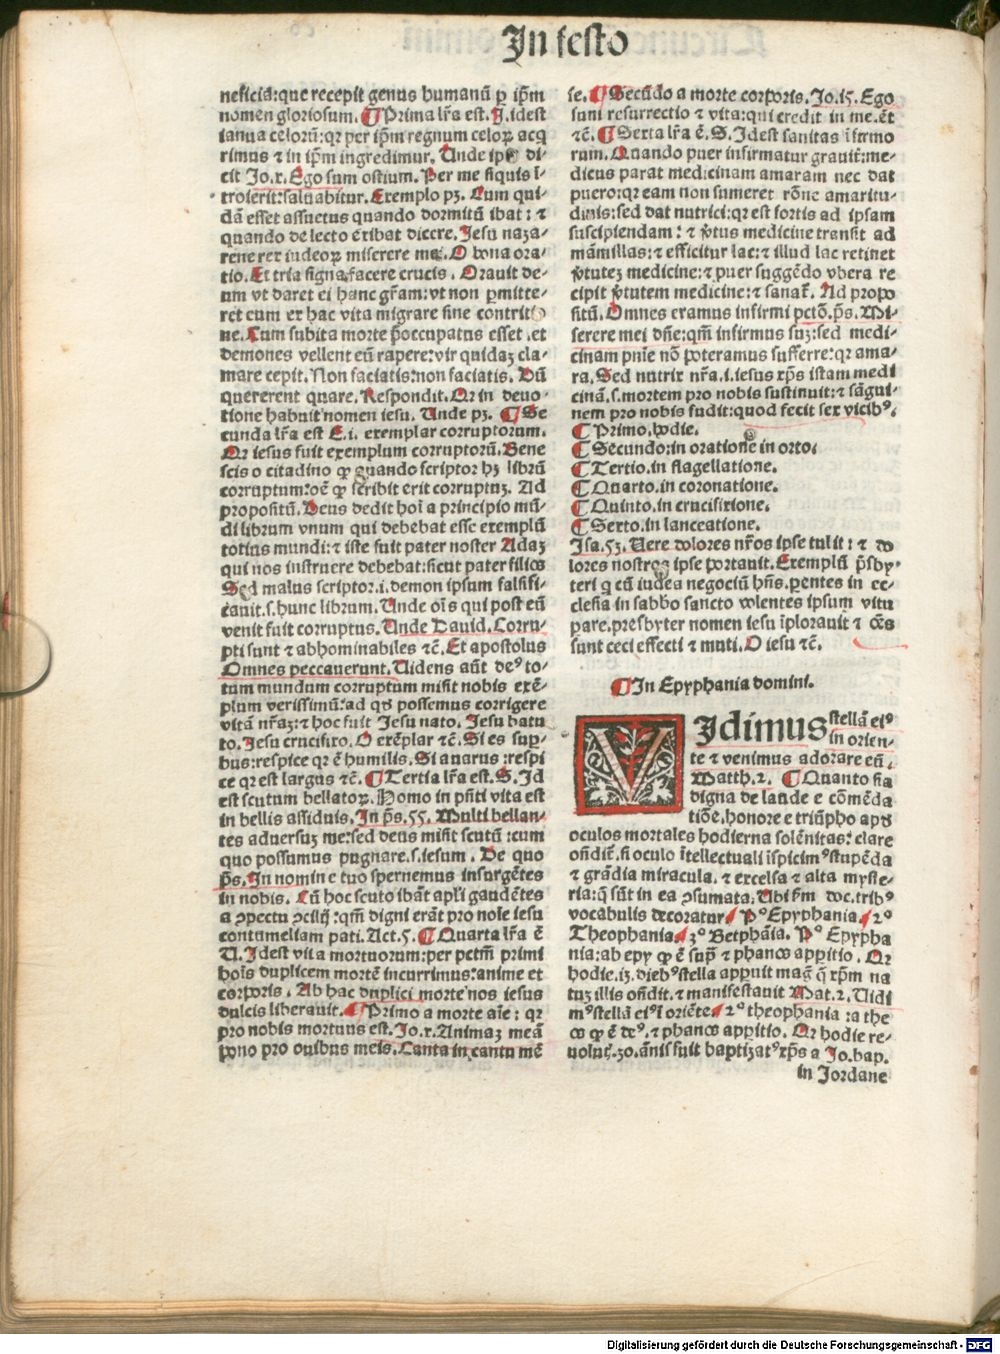 In festo
neficia:que recepit genus humanũ ꝑ ip̃m
nomen gloriosum. ¶ Prima lr̃a est. J. idest
ianua celorũ: qꝛ per ip̃m regnum celoꝝ acq
rimus ⁊ in ip̃m ingredimur. Unde ip̃e di-
cit Jo.x. Ego sum ostium. Per me siquis ĩ-
troierit:saluabitur. Exemplo pꝫ. Cum qui-
dã esset assuetus quando dormitũ ibat: ⁊
quando de lecto exibat dicere. Jesu naza-
rene rex iudeoꝝ miserere mei. O bona ora-
tio. Et tria signa facere crucis. Orauit de-
um vt daret ei hanc gr̃am: vt non ꝑmitte-
ret eum ex hac vita migrare sine contriti
ne. Cum subita morte p̃occupatus esset .et
demones vellent eũ rapere: vir quidaꝫ cla-
mare cepit. Non faciatis:non faciatis. Dũ
quererent quare. Respondit. Qꝛ in deuo-
tione habuit nomen iesu. Unde pꝫ. ¶ Se
cunda lr̃a est E.i. exemplar corruptorum.
Qꝛ iesus fuit exemplum corruptorũ. Bene
scis o citadino ꝙ quando scriptor hꝫ librũ
corruptum:oẽ ꝙ scribit erit corruptuꝫ. Ad
propositũ. Deus dedit hoĩ a principio mũ-
di librum vnum qui debebat esse exemplũ
totius mundi: ⁊ iste fuit pater noster Adaꝫ
qui nos instruere debebat:sicut pater filios
Sed malus scriptor.i.demon ipsum falsifi-
cauit.s.hunc librum. Unde oĩs qui post eũ
venit fuit corruptus. Unde Dauid. Corru-
pti sunt ⁊ abhominabiles ⁊c̃. Et apostolus
Omnes peccauerunt. Uidens aũt de⁹ to-
tum mundum corruptum misit nobis exẽ-
plum verissimũ: ad qd̃ possemus corrigere
vitã nr̃aꝫ: ⁊ hoc fuit Jesu nato. Jesu batu
to. Jesu crucifixo. O exẽplar ⁊c̃. Si es suꝑ-
bus:respice qꝛ ẽ humilis. Si auarus :respi
ce qꝛ est largus ⁊c̃. ¶ Tertia lr̃a est. S. Id
est scutum bellatoꝝ. Homo in pñti vita est
in bellis assiduis. In ps̃. 55. Multi bellan-
tes aduersuꝫ me:sed deus misit scutũ :cum
quo possumus pugnare.s.iesum. De quo
ps̃. In nomine tuo spernemus insurgẽtes
in nobis. Cũ hoc scuto ibãt apl̃i gaudẽtes
a ꝯspectu ꝯcilij: qm̃ digni erãt pro noĩe iesu
contumeliam pati. Act.5. ¶ Quarta lr̃a ẽ
U. Idest vita mortuorum: per pctm̃ primi
hoĩs duplicem mortẽ incurrimus: anime et
corporis. Ab hac duplici morte nos iesus
dulcis liberauit. ¶ Primo a morte aĩe: qꝛ
pro nobis mortuus est. Jo.x. Animaꝫ meã
pono pro ouibus meis. Canta in cantu mẽ
se. ¶ Secũdo a morte corporis. Jo.15. Ego
sum resurrectio ⁊ vita:qui credit in me. et
⁊c̃. ¶ Sexta lr̃a ẽ. S. Idest sanitas ĩfirmo
rum. Quando puer infirmatur grauit̃: me-
dicus parat medicinam amaram nec dat
puero: qꝛ eam non sumeret rõne amaritu-
dinis: sed dat nutrici: qꝛ est fortis ad ipsam
suscipiendam: ⁊ ṽtus medicine transit ad
mãmillas: ⁊ efficitur lac: ⁊ illud lac retinet
ṽtuteꝫ medicine: ⁊ puer suggẽdo vbera re
cipit ṽtutem medicine: ⁊ sanat̃. Ad propo
sitũ. Omnes eramus infirmi pctõ. ps̃. Mi-
serere mei dñe: qm̃ infirmus suꝫ: sed medi-
cinam pnĩe nõ poteramus sufferre: qꝛ ama-
ra. Sed nutrix nr̃a .i. iesus xp̃s istam medi
cinã.s.mortem pro nobis sustinuit: ⁊ sãgui-
nem pro nobis fudit: quod fecit sex vicib⁹.
¶ Primo. hodie.
¶ Secundo: in oratione in orto.
¶ Tertio. in flagellatione.
¶ Quarto. in coronatione.
¶ Quinto. in crucifixione.
¶ Sexto. in lanceatione.
Isa. 53. Uere dolores nr̃os ipse tulit: ⁊ do
lores nostros ipse portauit. Exemplũ p̃sby-
teri q̃ cũ iudea negociũ hñs. ꝑentes in ec-
clesia in sabb̃o sancto volentes ipsum vitu
pare. presbyter nomen iesu ĩplorauit ⁊ oẽs
sunt ceci effecti ⁊ muti. O iesu ⁊c̃.
¶ In Epyphania domini.
VIdimus stellã ei⁹
in orien-
te ⁊ venimus adorare eũ.
Matth.2. ¶ Quanto sia
digna de laude e cõmẽda
tiõe, honore e triũpho apd̃
oculos mortales hodierna solẽnitas: clare
oñdit̃. si oculo ĩtellectuali ĩspicim⁹ stupẽda
⁊ grãdia miracula. ⁊ excelsa ⁊ alta myste-
ria: q̃ sũt in ea ꝯsumata. Ubi fm̃ doc. trib⁹
vocabulis decoratur. P⁰ Epyphania. 2⁰
Theophania. 3⁰ Betphãia. P⁰ Epypha
nia: ab epy ꝙ ẽ supra ⁊ phanos apꝑitio. Qꝛ
hodie.13. dieb⁹ stella apꝑuit mag̃ q̃ xp̃m na
tuꝫ illis oñdit. ⁊ manifestauit Mat. 2. Uidi
m⁹ stellã ei⁹ ĩ oriẽte. 2⁰ theophania :a the
os ꝙ ẽ de⁹. ⁊ phanos apꝑitio. Qꝛ hodie re-
uolut̃. 30. ãnis fuit baptizat⁹ xp̃s a Jo. bap.
in Jordane
Digitalisierung gefördert durch die Deutsche Forschungsgemeinschaft - DFG